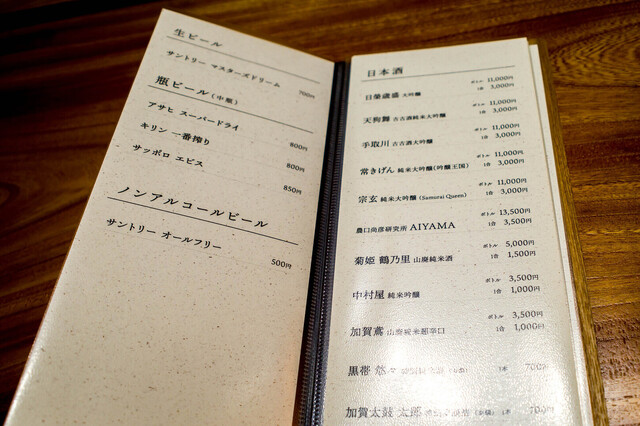 生ビール
サントリー マスターズドリーム 700円
瓶ビール（中瓶）
アサヒ スーパードライ 800円
キリン 一番搾り 800円
サッポロ エビス 850円
ノンアルコールビール
サントリー オールフリー 500円
日本酒
日榮歳盛 大吟醸 ボトル 11,000円
1合 3,000円
天狗舞 古古酒純米大吟醸 ボトル 11,000円
1合 3,000円
手取川 古古酒大吟醸 ボトル 11,000円
1合 3,000円
常きげん 純米大吟醸（吟醸王国） ボトル 11,000円
1合 3,000円
宗玄 純米大吟醸（Samurai Queen） ボトル 11,000円
1合 3,000円
農口尚彦研究所 AIYAMA ボトル 13,500円
1合 3,500円
菊姫 鶴乃里 山廃純米酒 ボトル 5,000円
1合 1,500円
中村屋 純米吟醸 ボトル 3,500円
1合 1,000円
加賀鳶 山廃純米超辛口 ボトル 3,500円
1合 1,000円
黒帯 悠々 1本 700円
加賀太鼓 太郎 1本 700円